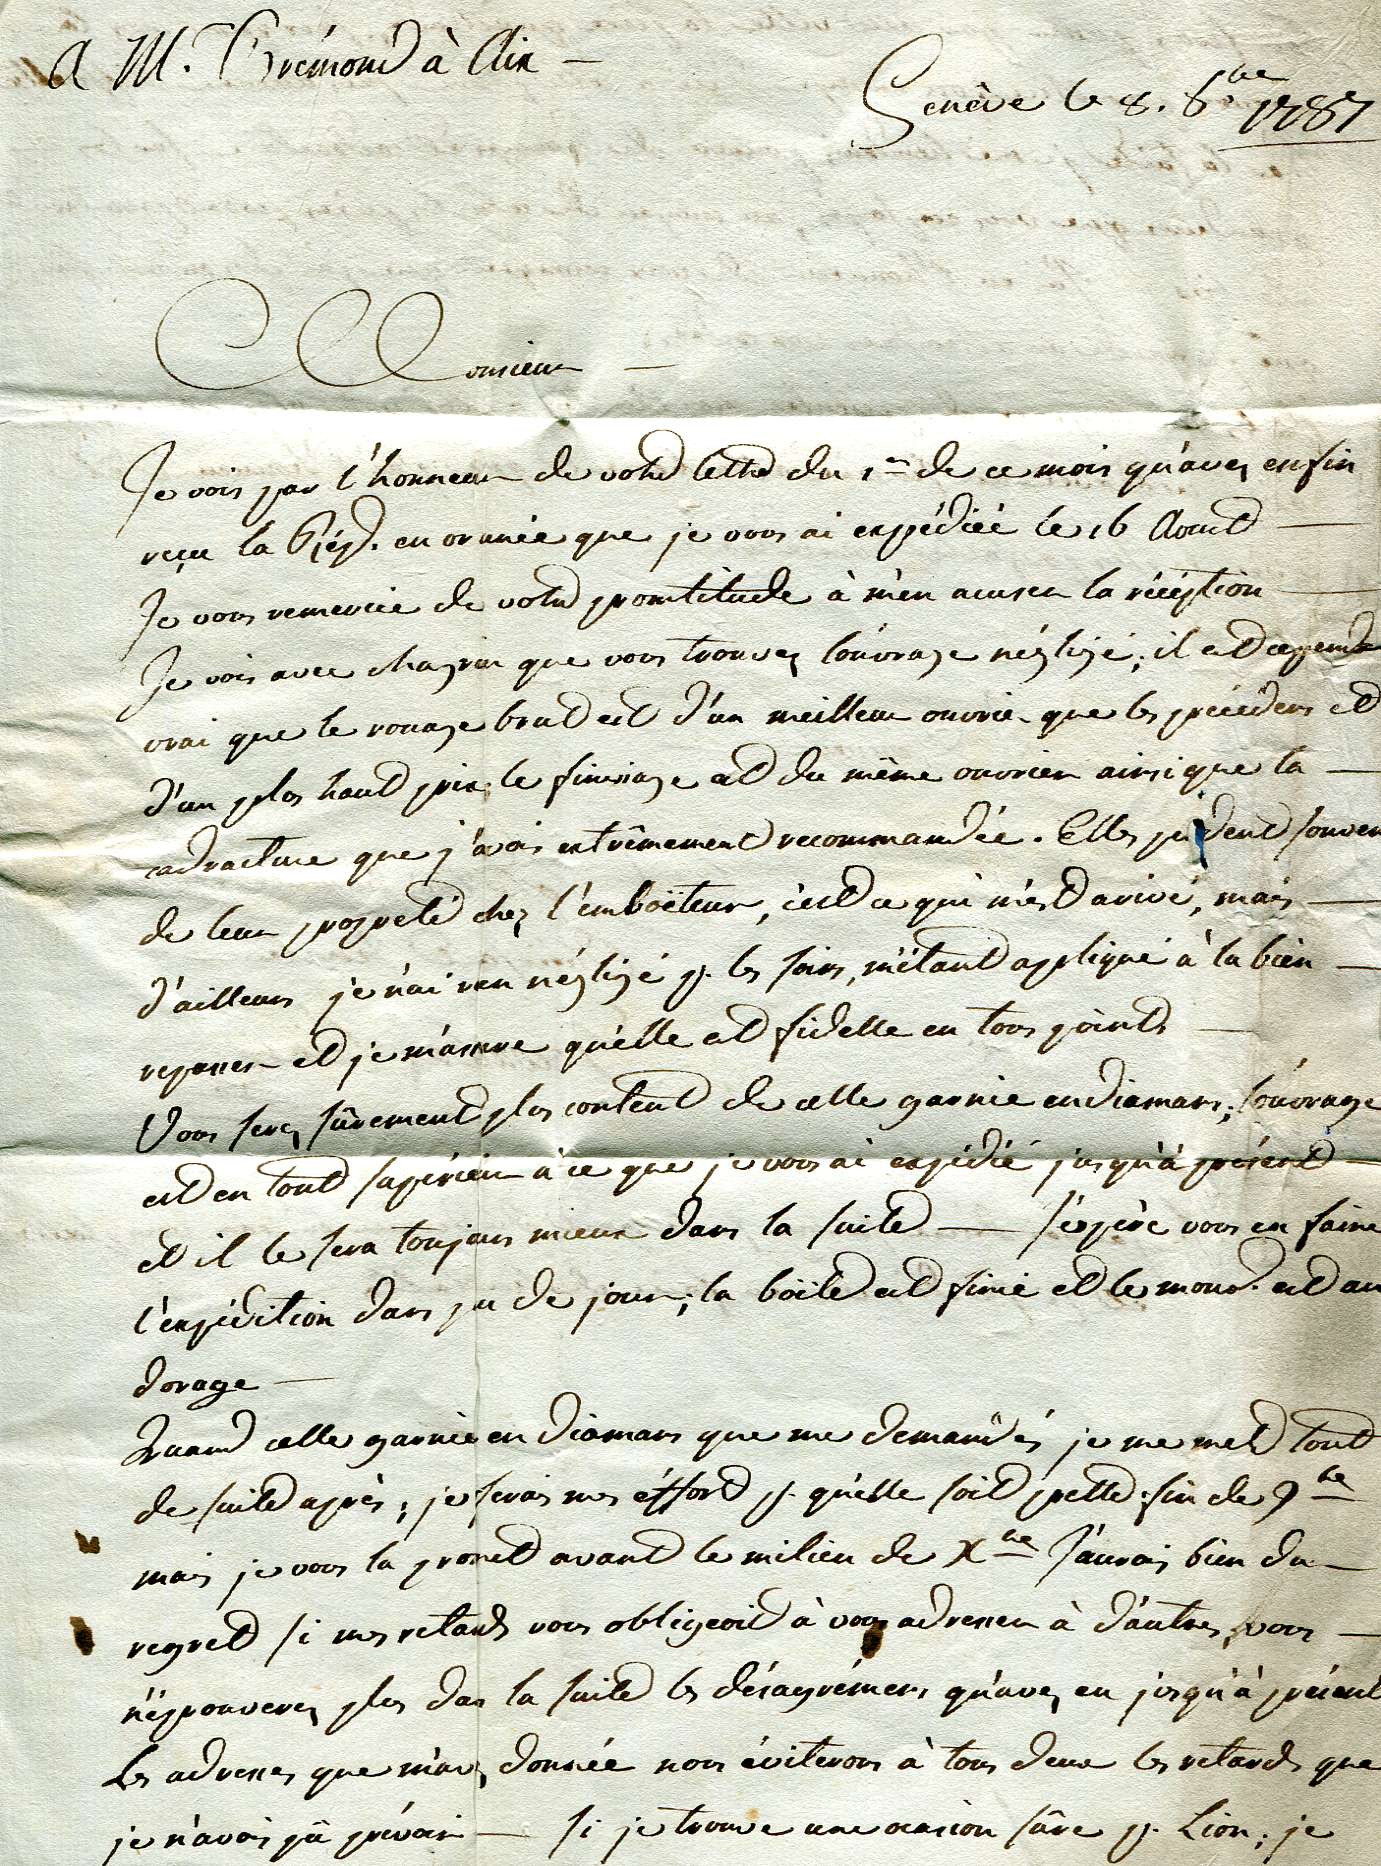 A M. Brémond à Aix —
Genève le 8. 8bre 1787
Monsieur —
Je vois par l'honneur de votre lettre du 1er de ce mois qu'avez enfin
reçu la Répet. en or unie que je vous ai expédiée le 16 Aoust —
Je vous remercie de votre promtitude à m'en acuser la réception —
Je vois avec chagrin que vous trouvez l'ouvrage négligé; il est cependt
vrai que le rouage brut est d'un meilleur ouvrier que les précédens et
d'un plus haut prix; le finissage est du même ouvrier ainsi que la —
cadracture que j'avois extrêmement recommandée. Elles perdent souven
de leur propreté chez l'emboîteur, c'est ce qui m'est arivé, mais —
d'ailleurs je n'ai rien négligé p. les soins, m'étant apliqué à la bien —
repasser et je m'assure qu'elle est fidelle en tous points —
Vous serez sûrement plus content de celle garnie en diamans; l'ouvrage
est en tout supérieur à ce que je vous ai expédié jusqu'à présent —
et il le sera toujours mieux dans la suite — J'espère vous en faire
l'expédition dans peu de jours; la boîte est finie et le mouvt. est au
dorage —
Quand celle garnie en diamans que me demandés je me met tout
de suite après; je ferai mes éffort p. qu'elle soit prette fin de 9bre
mais je vous la promet avant le milieu de Xbre J'aurais bien du —
regret si mes retards vous obligeoit à vous adresser à d'autres, vous —
n'éprouverez plus dan la suite les désagrémens qu'avez eu jusqu'à présent
Les adresses que m'avez donnée nous éviterons à tous deux les retards que
je n'avois pû prévoir — Si je trouve une ocasion sûre p. Lion; je